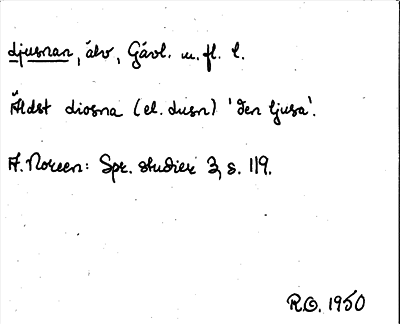 djusnan, älv, Gävl. m. fl. l.
Äldst diosna (el. dusn) 'den ljusa'.
A. Noreen: Spr. studier 3, s. 119.
R.O. 1950